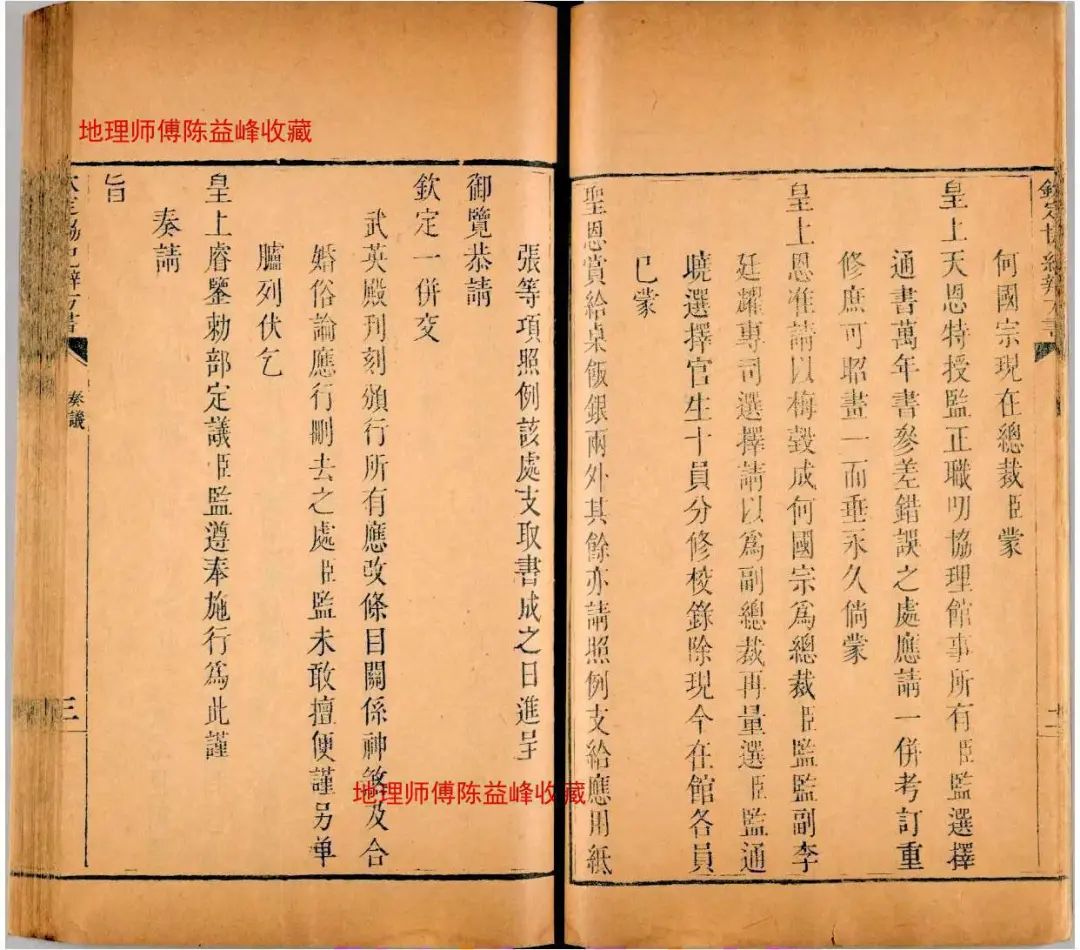 欽定協紀辨方書
何國宗現在總裁臣蒙
皇上天恩特授監正職叨協理館事所有臣監選擇
通書萬年書參差錯誤之處應請一併考訂重
修庶可昭畫一而垂永久倘蒙
皇上恩准請以梅瑴成何國宗為總裁臣監監副李
廷耀專司選擇請以為副總裁再量選臣監通
曉選擇官生十員分修校錄除現今在館各員
已蒙
聖恩賞給桌飯銀兩外其餘亦請照例支給應用紙
張等項照例該處支取書成之日進呈
御覽恭請
欽定一併交
武英殿刊刻頒行所有應改條目關係神煞及合
婚俗論應行刪去之處臣監未敢擅便謹另单
臚列伏乞
皇上睿鑒勅部定議臣監遵奉施行為此謹
奏請
旨
欽定協紀辨方書
奏議
三
地理师傅陈益峰收藏
地理师傅陈益峰收藏